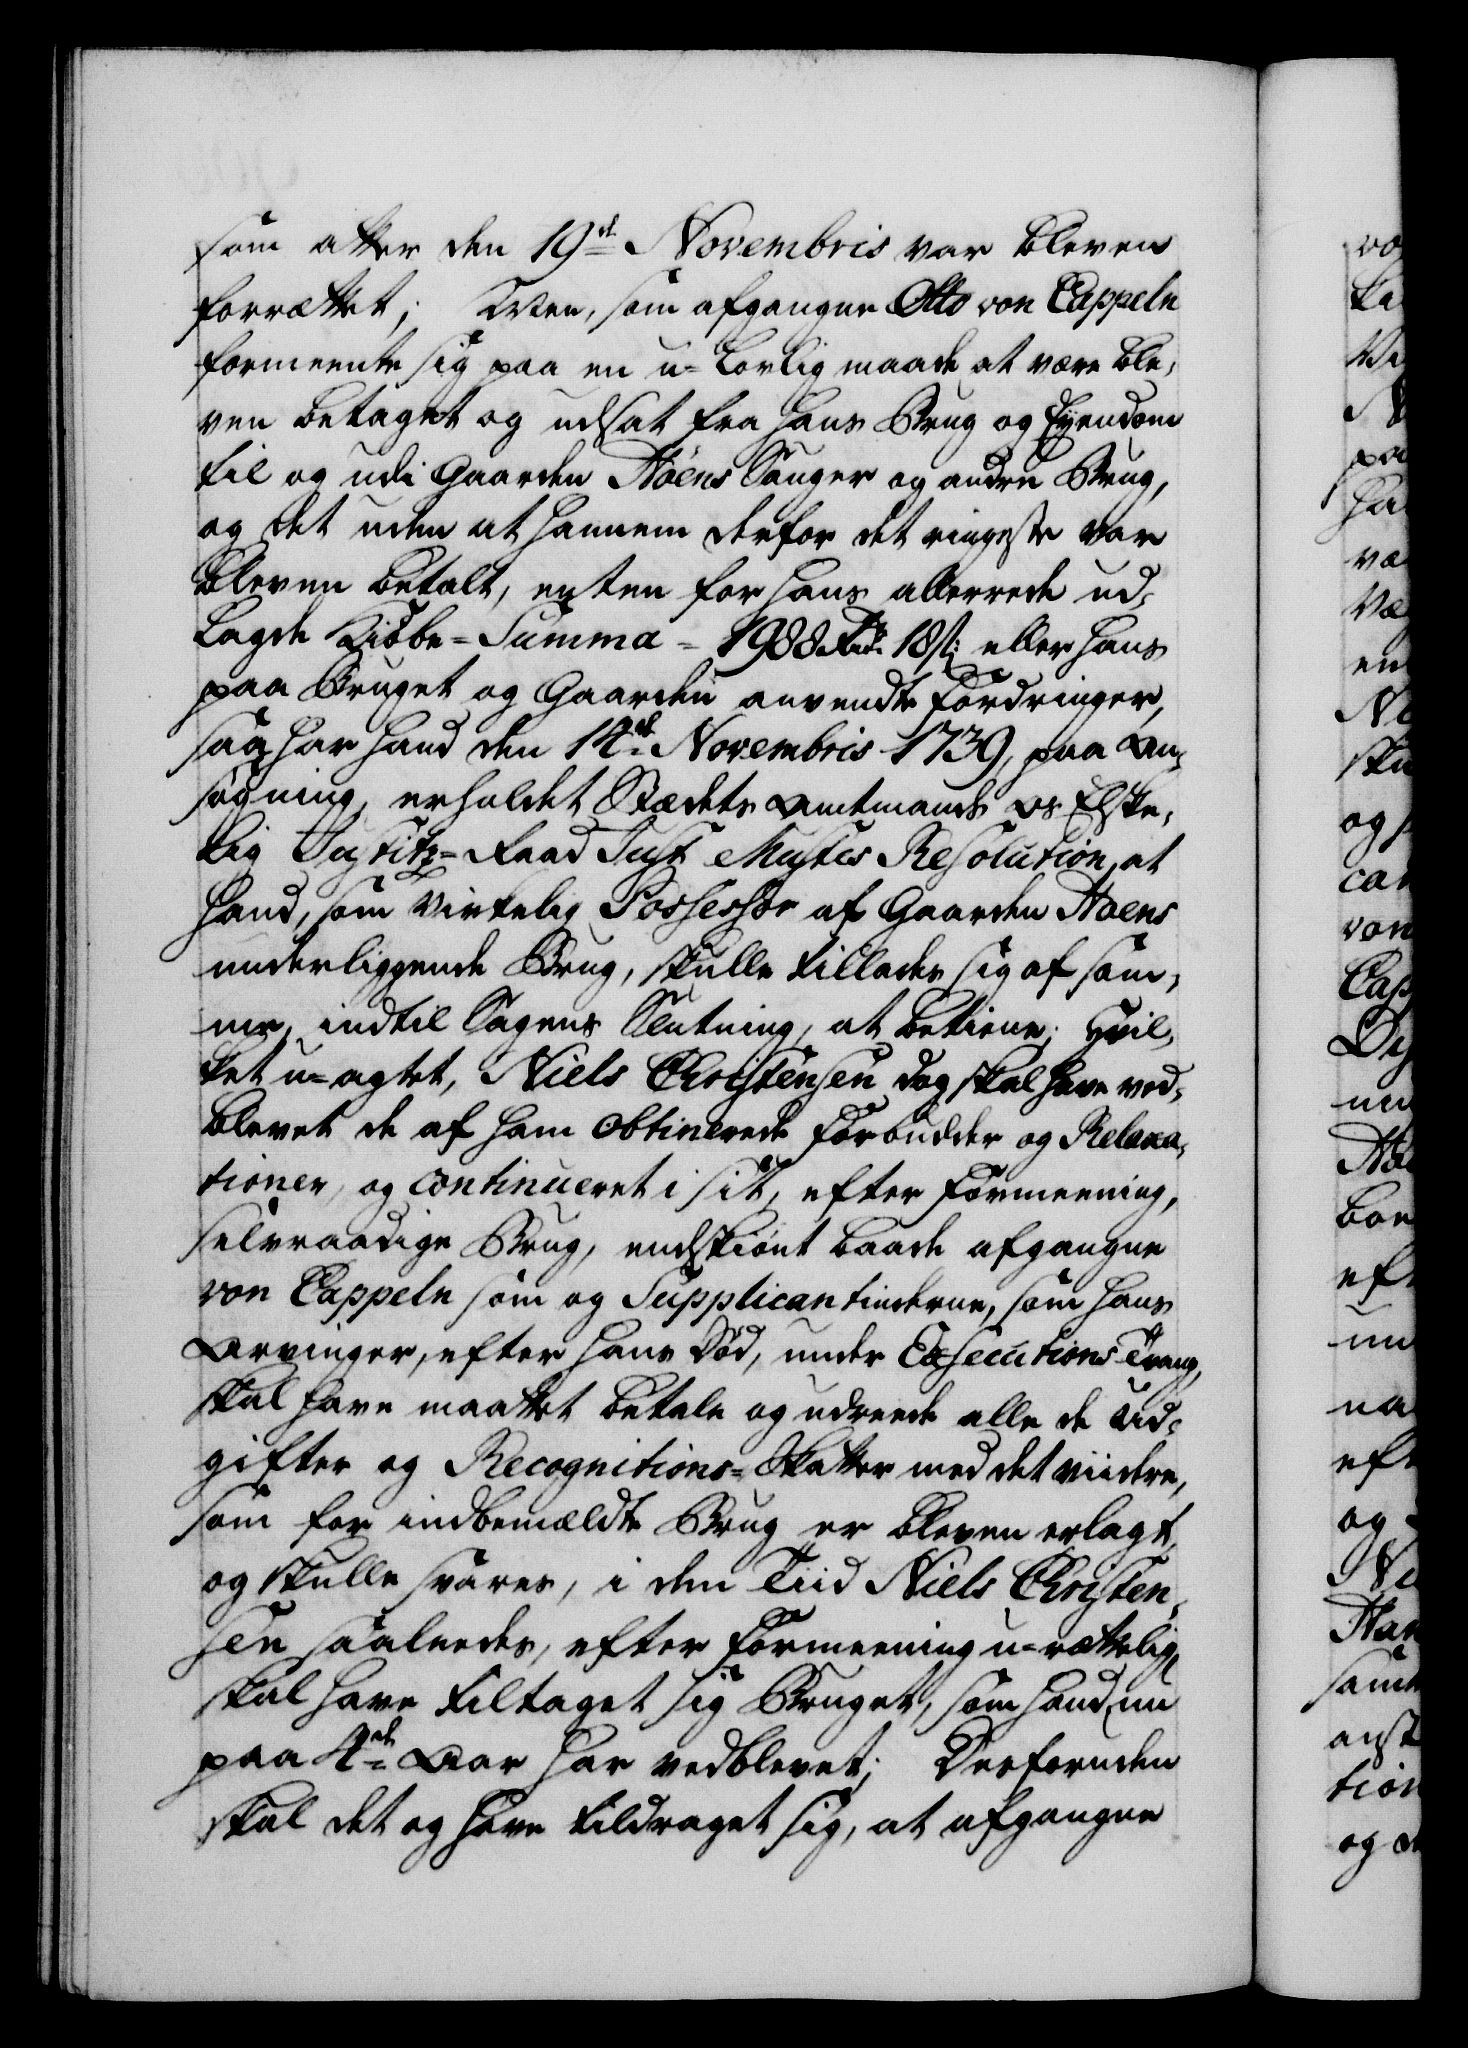 som atter den 19de Novembris var bleven
forrættet; Men, som afgangne Otto von Cappeln
formeente sig paa en u-lovlig maade at være ble-
ven betaget og udsat fra hans Brug og Eyendom
til og udi Gaarden Aaens Sauger og andre Brug,
og det uden at hannem derfor det ringeste var
bleven betalt, enten for hans allerrede ud-
lagde Kiøbe-Summa - 1988 Rdr. 18 s: eller hans
paa Bruget og Gaarden anvendte Fordringer,
saa har hand den 14de Novembris 1739, paa An-
søgning, erholdet Stædets Amtmands os Elske-
lig Justitz-Raad Just Must's Resolution, at
hand, som virkelig Possessor af Gaarden Aaens
underliggende Brug, skulle tillades sig af sam-
me, indtil Sagens Slutning, at betiene; Hvil-
ket u-agtet, Niels Christensen dog skal have ved-
blevet de af ham obtinerede Forbudder og Relaxa-
tioner, og continueret i sit, efter Formeening,
selvraadige Brug, endskiønt baade afgangne
von Cappeln som og Supplicantinderne, som hans
Arvinger, efter hans Død, under Executions Tvang,
skal have maattet betale og udreede alle de Ud-
gifter og Recognitions-Skatter med det viidere,
som for indbemældte Brug er bleven erlagt,
og skulle svares, i den Tiid Niels Christen-
sen saaledes, efter Formeening u-rættelig
skal have tiltaget sig Bruget, som hand nu
paa 4de Aar har vedblevet; Desforuden
skal det og have tildraget sig, at afgangne